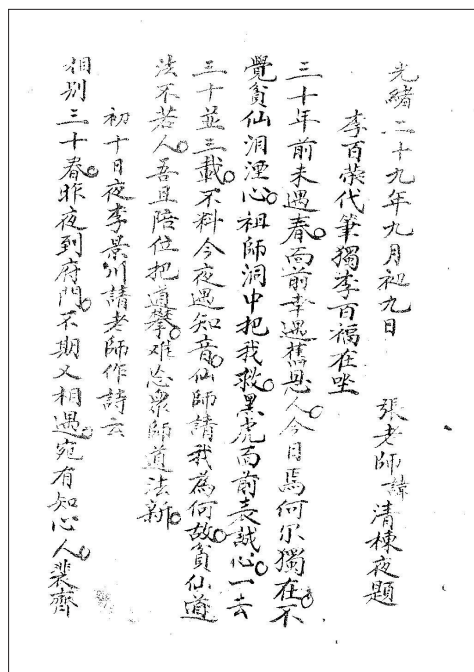 光緒二十九年九月初九日 張老師諱清棟夜題
李百荣代筆獨李百福在坐
三十年前未遇春。面前幸遇舊恩人。今日焉何尔獨在。不
覺貧仙淚溼心。祖師洞中把我救。黑虎面前表誠心。一去
三十並三載。不料今夜遇知音。仙師請我為何故。貧仙道
法不若人。吾且陪位把道攀。难忘眾師道法新。
初十日夜李景川請老師作詩云
相別三十春。昨夜到府門。不期又相遇。宛有知心人。裴齊